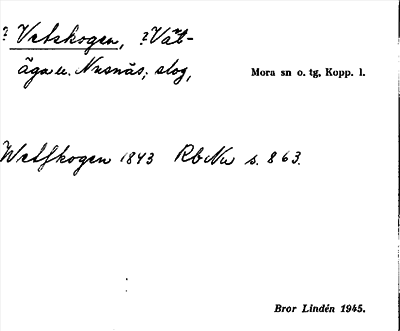 ? Vetskogen, ?Vät-
äga u. Nusnäs; skog,
Mora sn o. tg, Kopp. l.
Wetskogen 1843 RbNu s. 863.
Bror Lindén 1945.